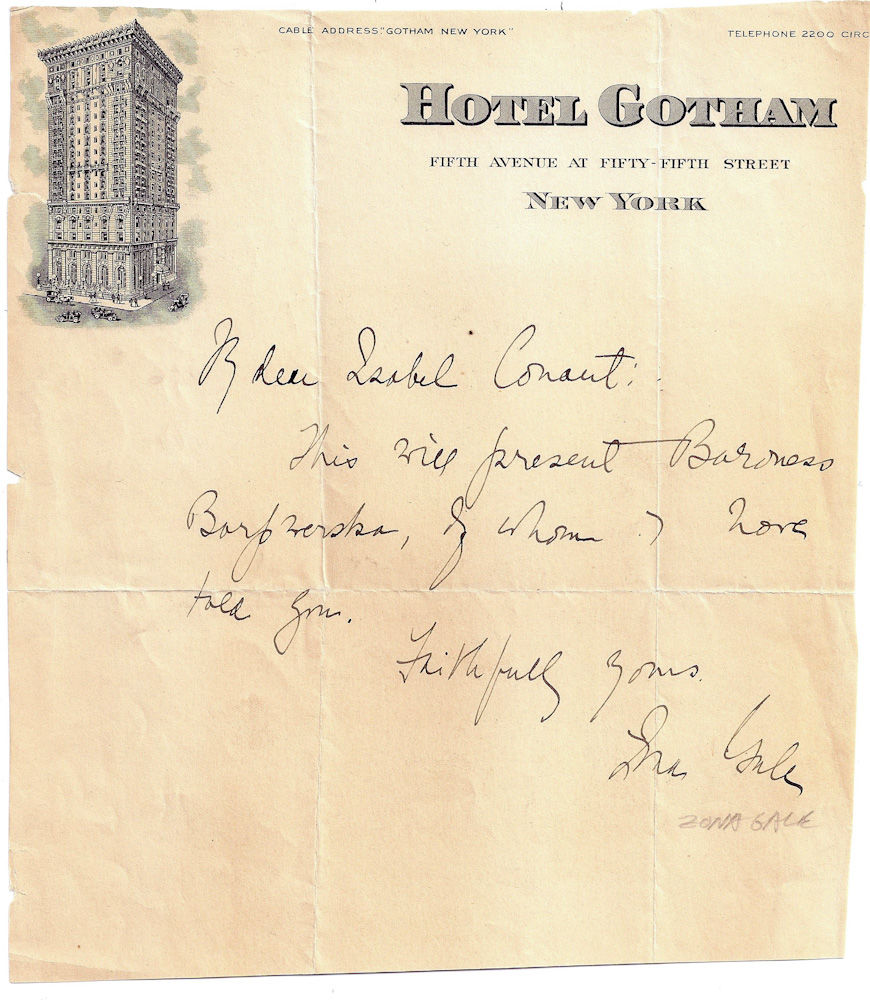 CABLE ADDRESS:"GOTHAM NEW YORK"
TELEPHONE 2200 CIRC
HOTEL GOTHAM
FIFTH AVENUE AT FIFTY-FIFTH STREET
NEW YORK
My dear Isabel Conant:
This will present Baroness
, of whom I have
told you.
Faithfully yours.
Zona Gale
ZONA GALE